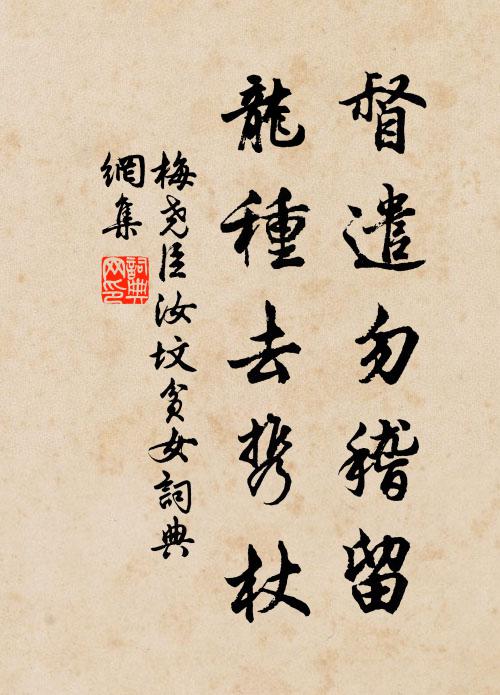 督遣勿稽留
龍種去携杖
梅尭臣汝坟貧女詞典
網集
詞典
网印